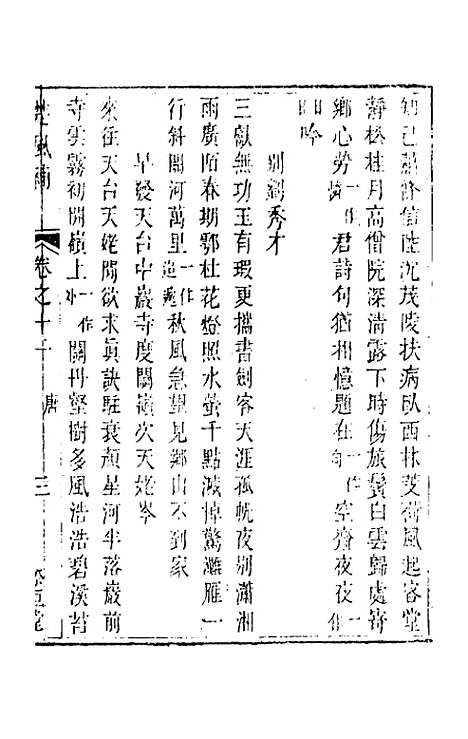 知己蕭條信陸沉茂陵扶病臥西林芰荷風起客堂
靜松桂月高僧院深清露下時傷旅鬢白雲歸處寄
鄉心勞一作君詩句猶相憶題在一作空齋夜夜一作
吟
別劉秀才
三獻無功玉有瑕更攜書劍客天涯孤帆夜別瀟湘
雨廣陌春期鄠杜花燈照水螢千點滅棹驚灘雁一
行斜關河萬里一作秋風急望見鄉山不到家
早發天台中巖寺度關嶺次天姥岑
來往天台天姥間欲求真訣駐衰顏星河半落巖前
寺雲霧初開嶺上一作關丹壑樹多風浩浩碧溪苔
楚風補
卷之十一
唐
三
堂